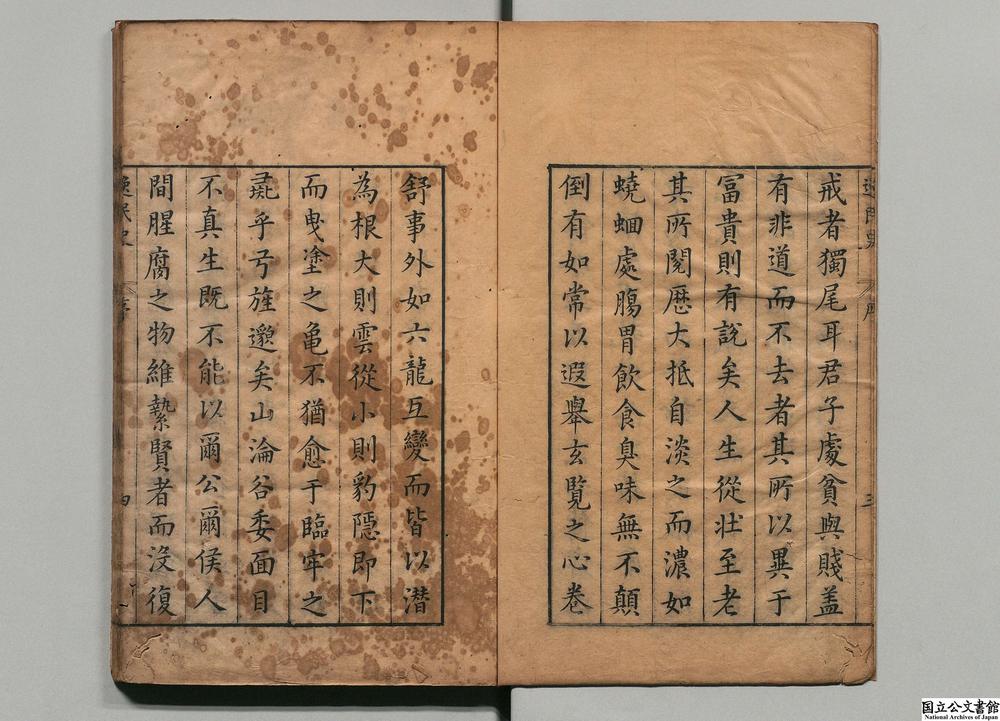 戒者獨尾耳君子處貧與賤盖
有非道而不去者其所以異于
冨貴則有說矣人生從壯至老
其所閱歴大抵自淡之而濃如
蟯蛔處膓胃飲食臭味無不顛
倒有如常以遐舉玄覽之心卷
舒事外如六龍互變而皆以潛
為根大則雲從小則豹隱即下
而曳塗之亀不猶愈于臨牢之
彘乎弓旌邈矣山淪谷委面目
不真生既不能以爾公爾侯人
間腥腐之物維縶賢者而沒復
逸民史
序
四
三
国立公文書館
National Archives of Japan